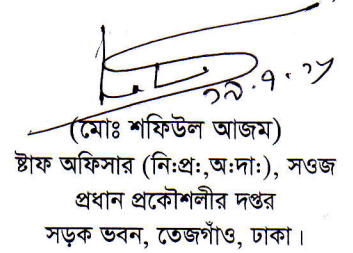 (মোঃ শফিউল আজম)
ষ্টাফ অফিসার (নি:প্র:,অ:দা:), সওজ
প্রধান প্রকৌশলীর দপ্তর
সড়ক ভবন, তেজগাঁও, ঢাকা।